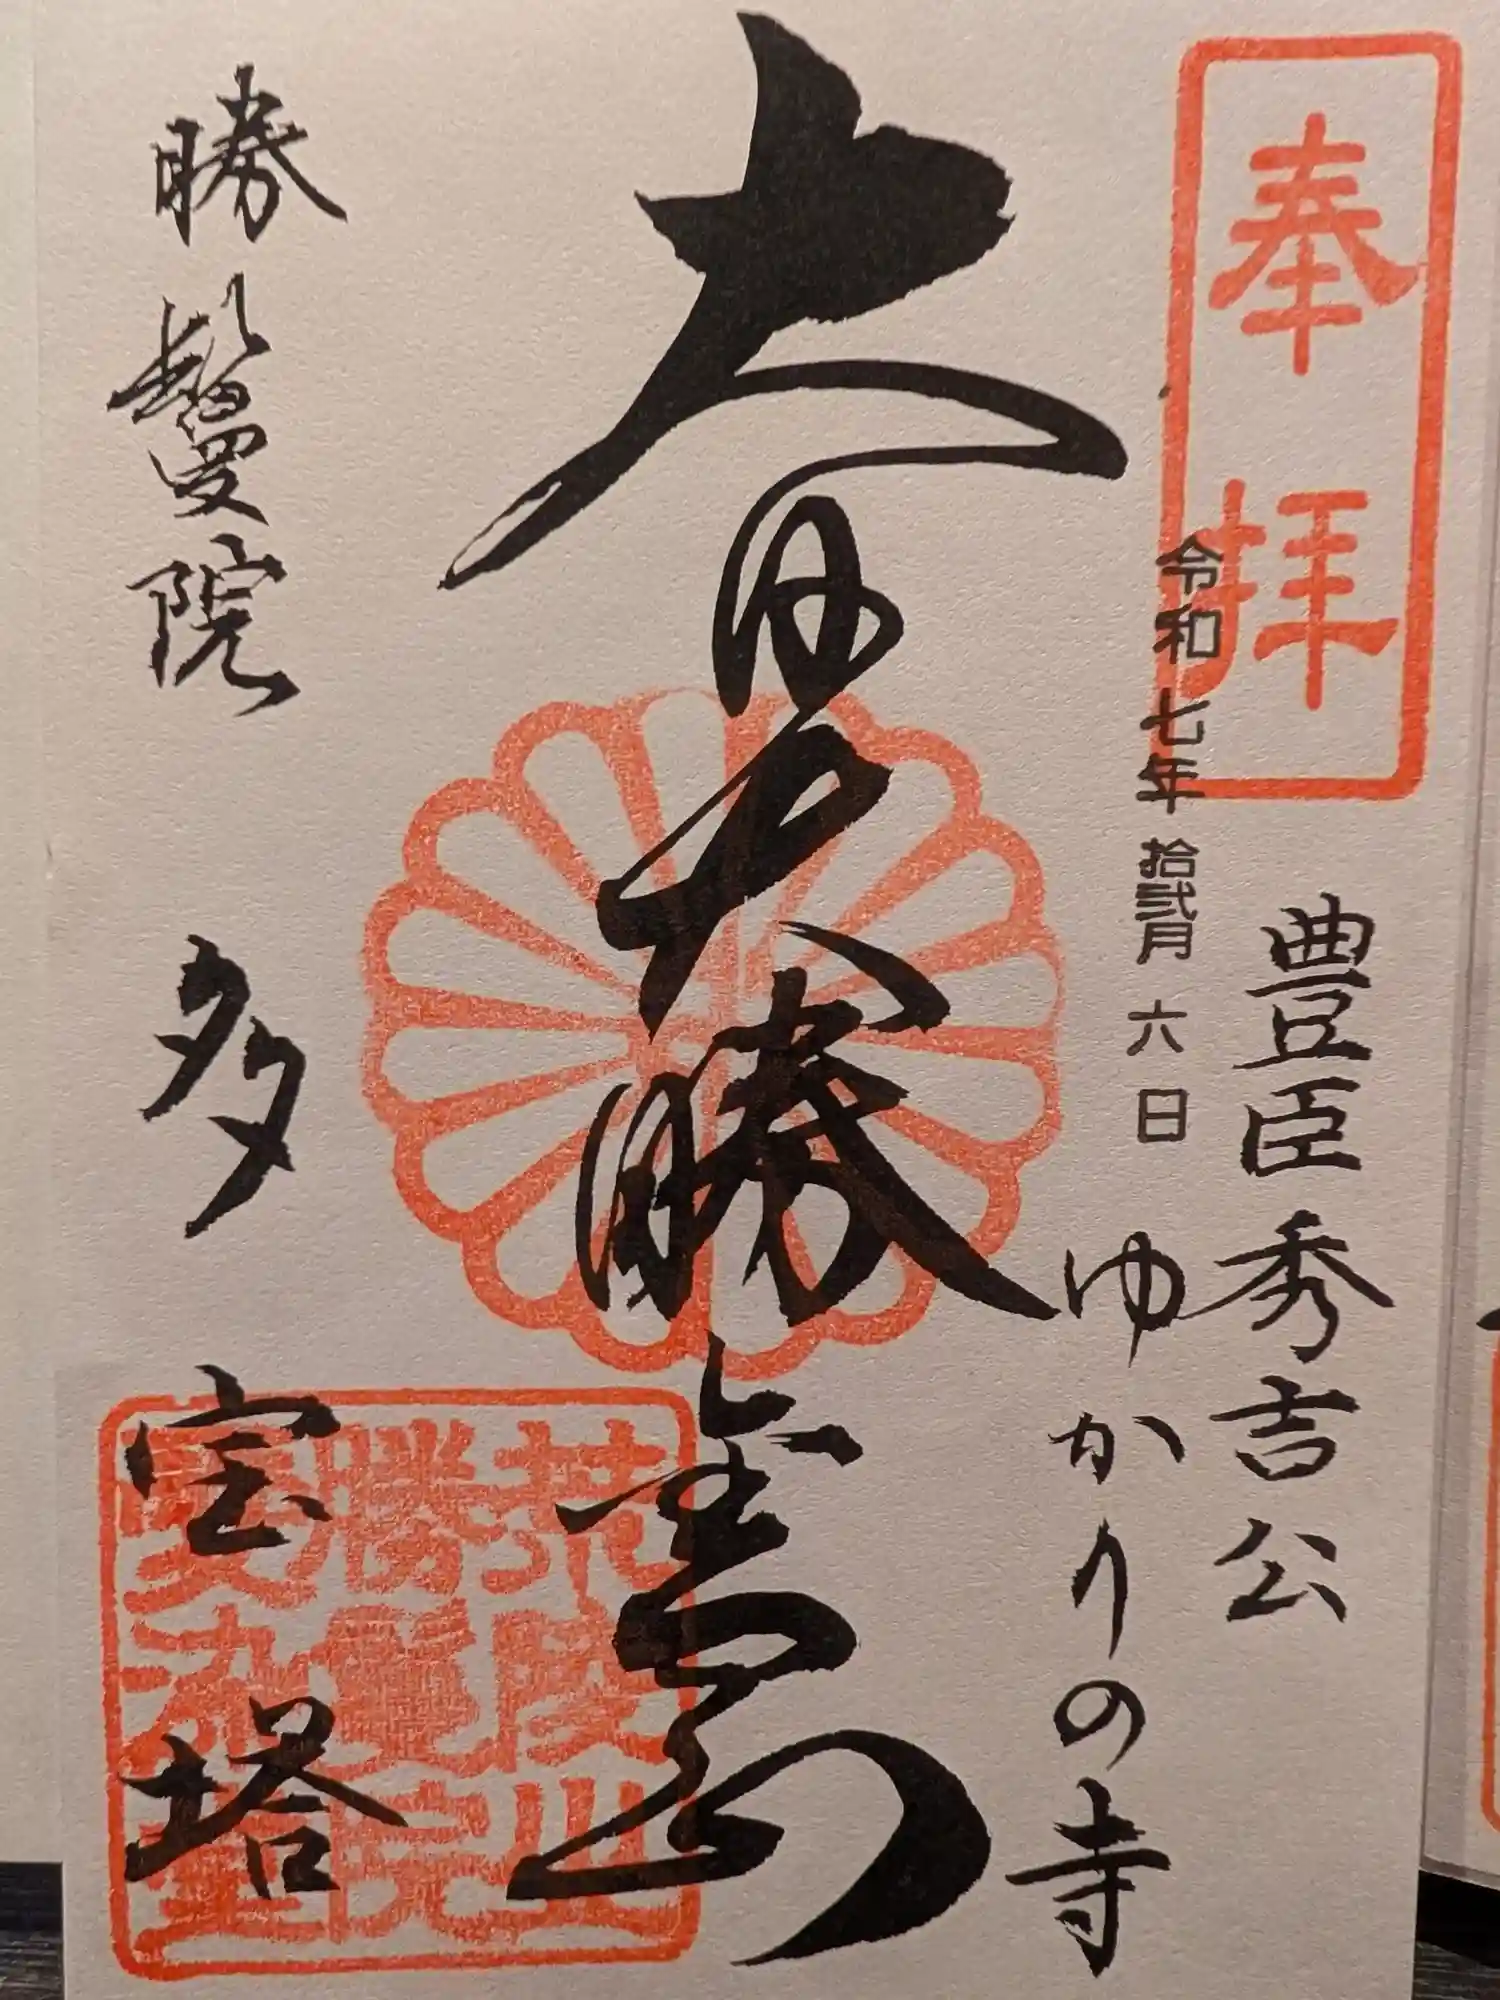 奉拝
令和七年拾弐月六日
豊臣秀吉公
ゆかりの寺
大日大勝金剛
勝鬘院
多宝塔
荒陵山
勝鬘院
愛染堂